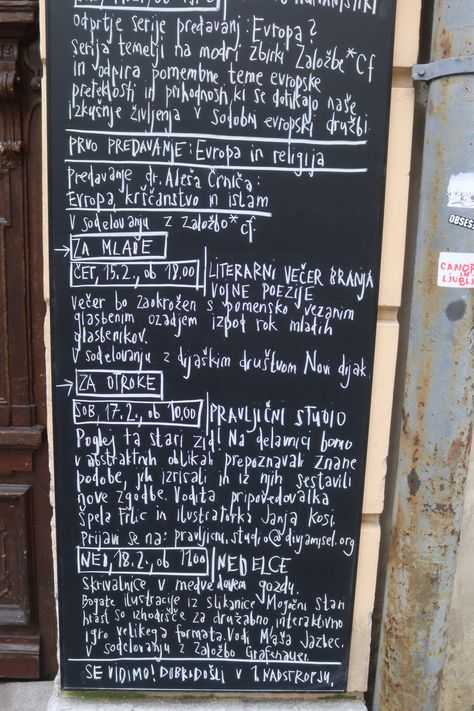 ODPRTJE SERIJE PREDAVANJ: EVROPA?
serija temelji na modri zbirki Založbe *cf
in odpira pomembne teme evropske
preteklosti in prihodnosti, ki se dotikajo naše
izkušnje življenja v sodobni evropski družbi.
PRVO PREDAVANJE: Evropa in religija
Predavanje dr. Aleša Črniča:
Evropa, krščanstvo in islam
V sodelovanju z Založbo *cf.
→ ZA MLADE
ČET, 15.2., ob 18.00 | LITERARNI VEČER BRANJA
VOJNE POEZIJE
Večer bo zaokrožen s pomensko vezanim
glasbenim ozadjem izpod rok mladih
glasbenikov.
V sodelovanju z dijaškim društvom Novi dijak.
→ ZA OTROKE
SOB, 17.2., ob 10.00 | PRAVLJIČNI STUDIO
Poglej ta stari zid! Na delavnici bomo
v abstraktnih oblikah prepoznavali znane
podobe, jih izrisali in iz njih sestavili
nove zgodbe. Vodita pripovedovalka
Špela Frlic in ilustratorka Janja Kosi.
Prijavi se na: pravljicni.studio@divjamisel.org
NED, 18.2., ob 11.00 | NEDELCE
Skrivalnice v medvedovem gozdu.
Bogate ilustracije iz slikanice Mogočni stari
hrast so izhodišče za družabno interaktivno
igro velikega formata. Vodi Maša Jazbec,
v sodelovanju z Založbo Grafenauer.
SE VIDIMO! DOBRODOŠLI V 1. NADSTROPJU.
OBSES
CANO
IN
LJUBL